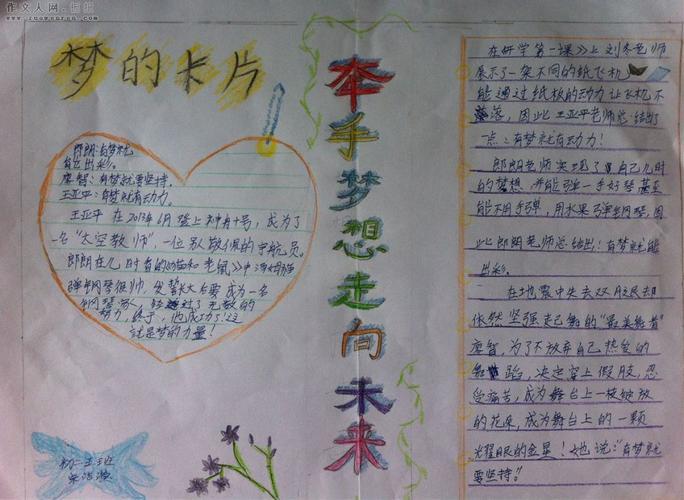 作文人网
www.zuowenren.com
梦的卡片
郎朗:有梦就
能出彩。
廖智:有梦就要坚持。
王亚平:有梦就有动力。
王亚平 在2013年6月登上神舟十号,成为了
一名"太空教师"一位别敬佩的宇航员。
郎朗在儿时看的《猫和老鼠》中
弹钢琴很帅,发誓长大后要成为一名
钢琴家,经过了无数的
努力,终于,他成功了!这
就是梦的力量!
牵手梦想走向未来
初一五班
在《开学第一课》上刘冬老师
展示了一架不同的纸飞机
能通过纸板的动力让飞机不
落,因此王亚平老师总结出了
一点:有梦就有动力!
郎朗老师实现了自己儿时
的梦想,并能弹一手好琴甚至
能不用手弹,用水果弹钢琴,因
此郎朗老师总结出:有梦就能
出彩。
在地震中失去双腿却
依然坚强走已舞的"最美舞者"
廖智,为了不放弃自己热爱的
舞蹈,决定穿上假肢,忍
受痛苦,成为舞台上一枝绽放
的花朵,成为舞台上的一颗
光耀眼的金星!她说:"有梦就
要坚持。"